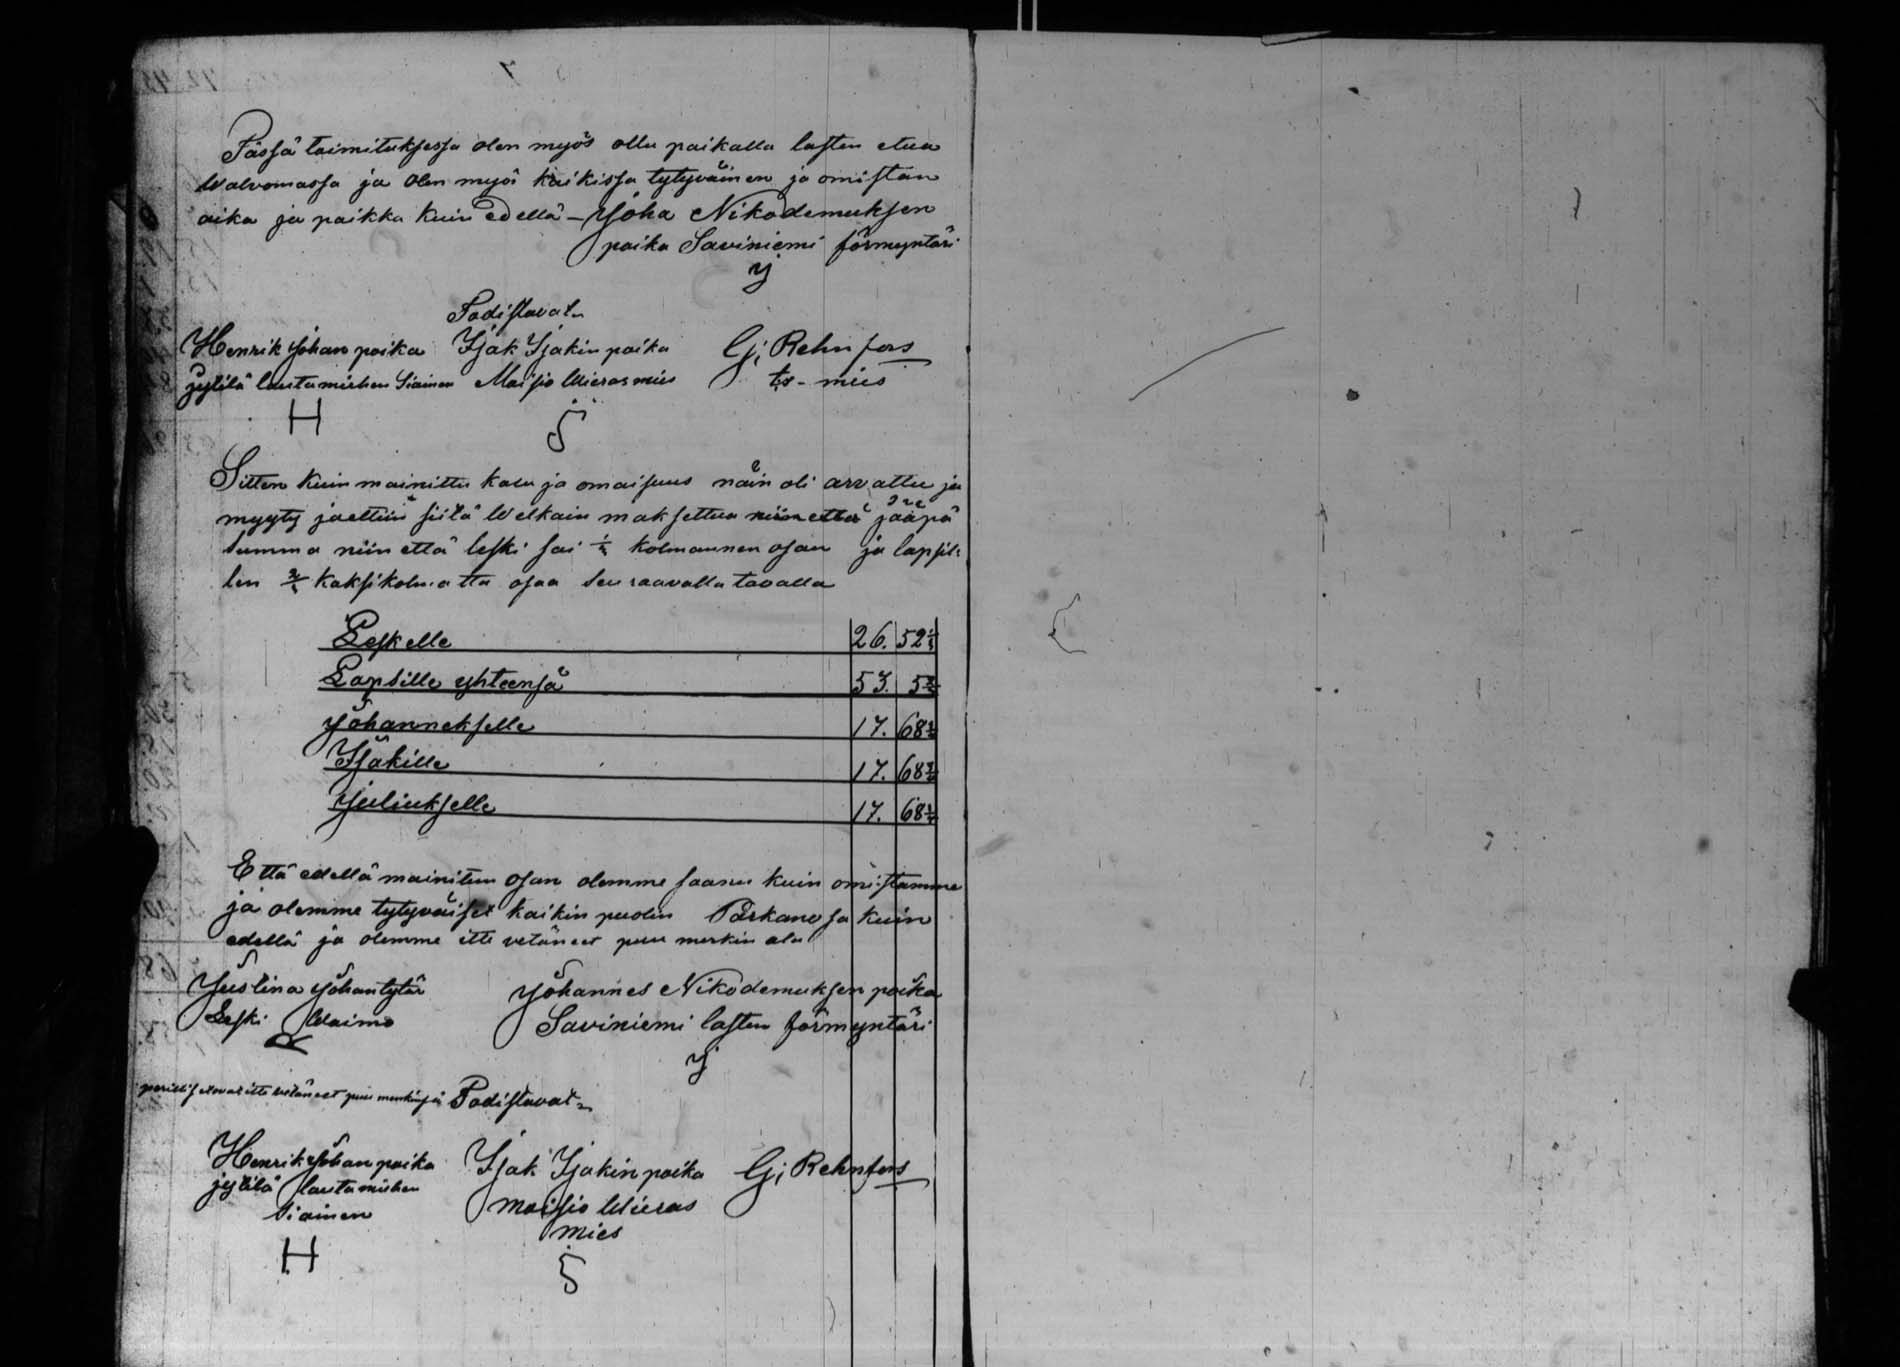 Tässä toimituksessa olen myös ollu paikalla lasten etua
Walvomassa ja olen myös kaikissa tytyväinen ja omistan
aika ja paikka kuin edellä – Joha Nikodemuksen
poika Saviniemi förmyntäri
J
Todistavat
Henrik Johan poika Isak Isakin poika G; Rehnfors
jylilä lautamiehen Siainen Maisio Wieras mies ts - mies
H
Sitten kuin mainittu kalu ja omaisuus näin oli arvattu ja
myyty jaettiin siitä Welkain maksettua niin että jääpä
summa niin että leski sai 1/3 kolmannen osan ja lapsil:
len 2/3 kaksikolmatta osaa seuraavalla tavalla
Leskelle 26. 52
Lapsille yhteensä 53. 5
Johannekselle 17. 68
Isakille 17. 68
Juliukselle 17. 68
Että edellä mainitun osan olemme saanu kuin omistamme
ja olemme tytyväiset kaikin puolin Parkanosa kuin
edellä ja olemme itte vetäneet puu merkin ala
Justina Johantytär Johannes Nikodemuksen poika
Leski Waimo Saviniemi lasten förmyntäri
J
itte vetäneet puu merkinsä Todistavat
Henrik Johan poika Isak Isakin poika G; Rehnfors
jylilä lautamiehen Maisio Wieras
Siainen mies
H